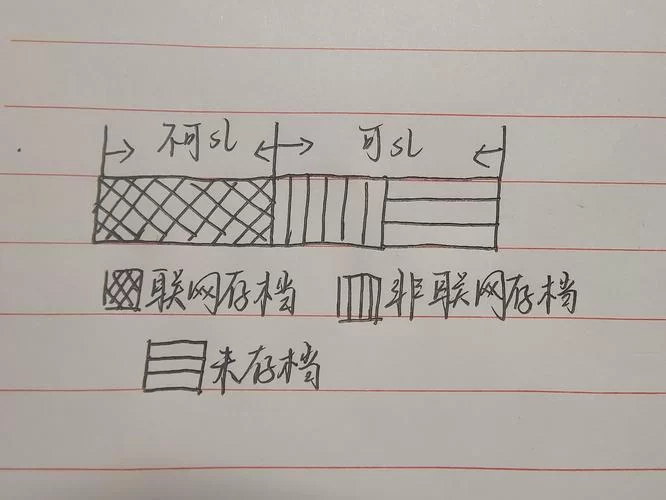 不可SL 可SL
联网存档 非联网存档
未存档